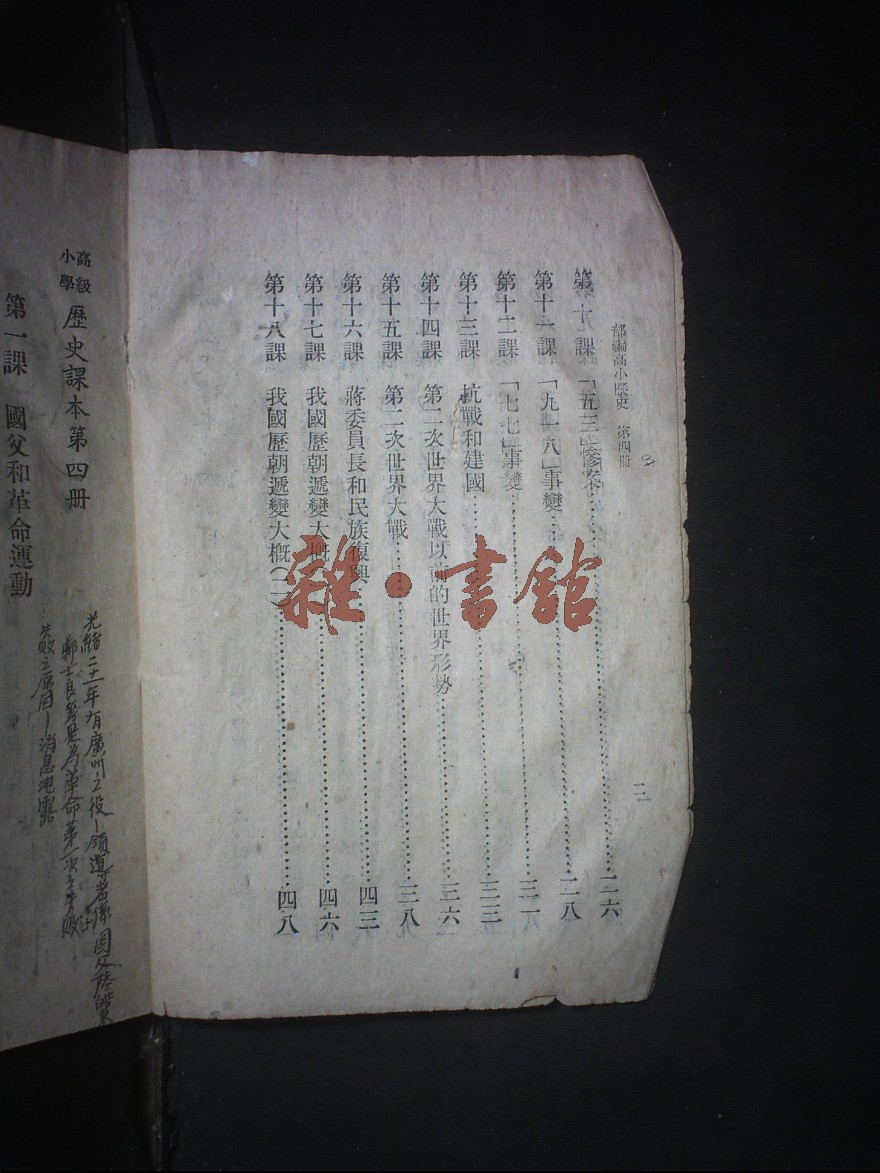 部編高小歷史 第四册
二
第十課 「五三」慘案……二六
第十一課 「九一八」事變……二八
第十二課 「七七」事變……三一
第十三課 抗戰和建國……三三
第十四課 第二次世界大戰以前的世界形勢……三六
第十五課 第二次世界大戰……三八
第十六課 蔣委員長和民族復興……四三
第十七課 我國歷朝遞變大概……四六
第十八課 我國歷朝遞變大概(二)……四八
雜·書館
高級小學 歷史課本第四册
第一課 國父和革命運動
光緒二十一年有廣州之役—領導者係國父陸皓東
鄭士良等是為革命第一次之失敗
失敗之原因—消息洩露